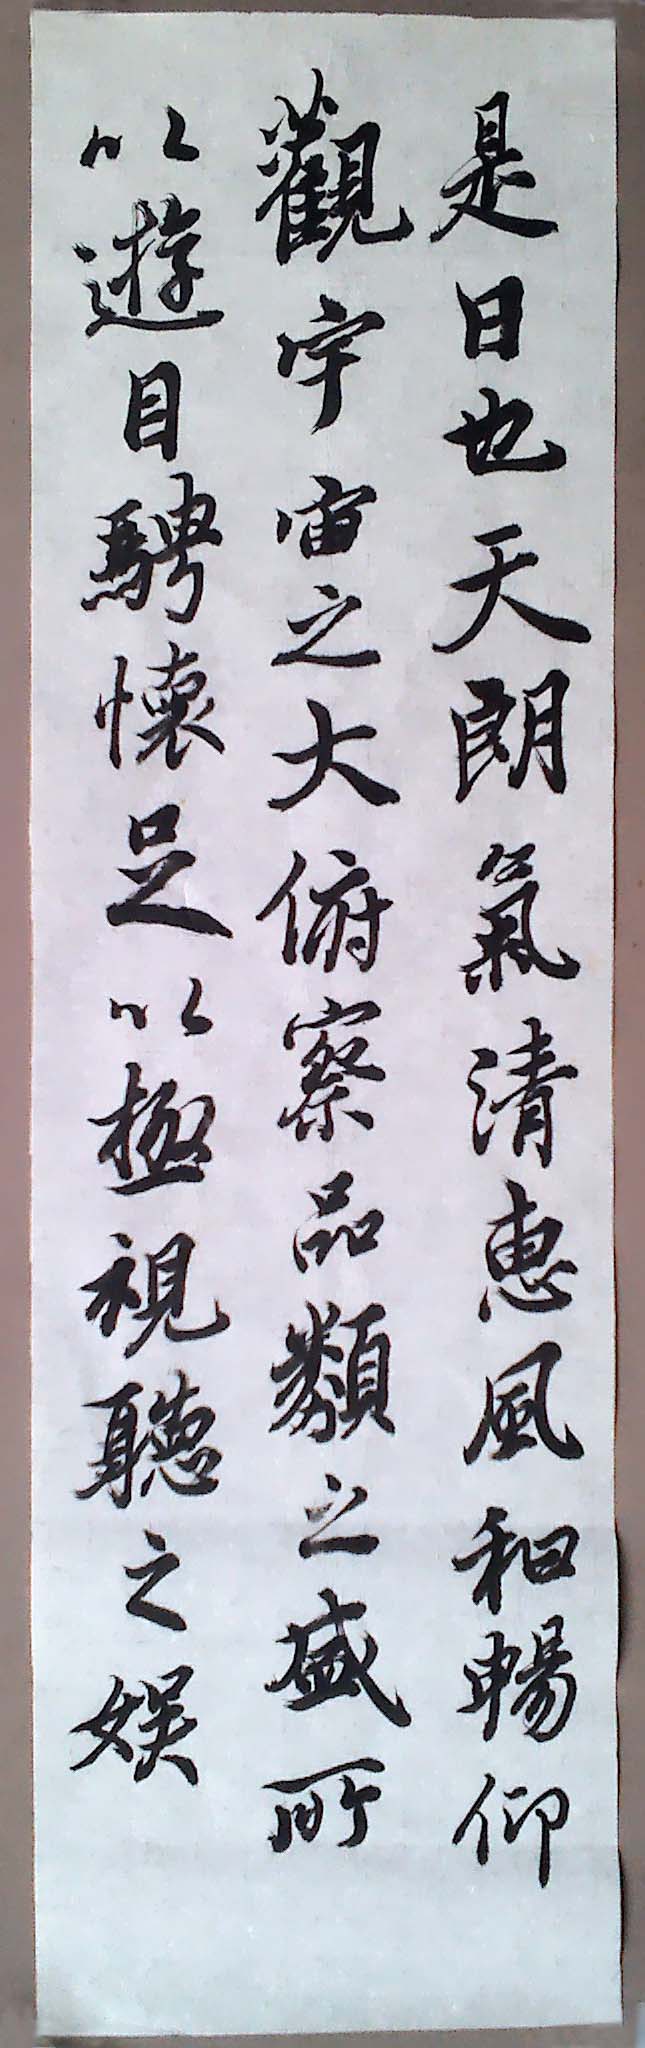 是日也天朗氣清惠風和暢仰
觀宇宙之大俯察品類之盛所
以遊目騁懷足以極視聽之娛